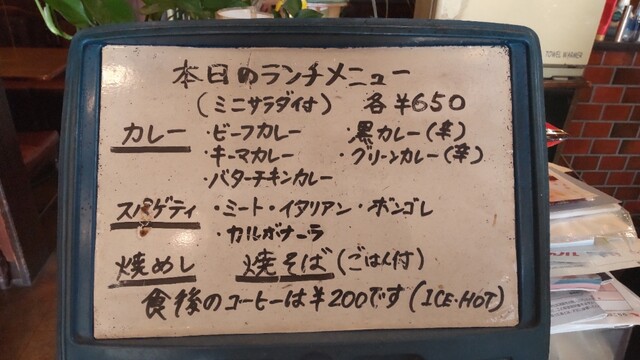 本日のランチメニュー
(ミニサラダ付) 各¥650
カレー ・ビーフカレー ・黒カレー(辛)
・キーマカレー ・グリーンカレー(辛)
・バターチキンカレー
スパゲティ ・ミート・イタリアン・ボンゴレ
・カルボナーラ
焼めし 焼そば(ごはん付)
食後のコーヒーは¥200です(ICE・HOT)
TOWEL WARMER